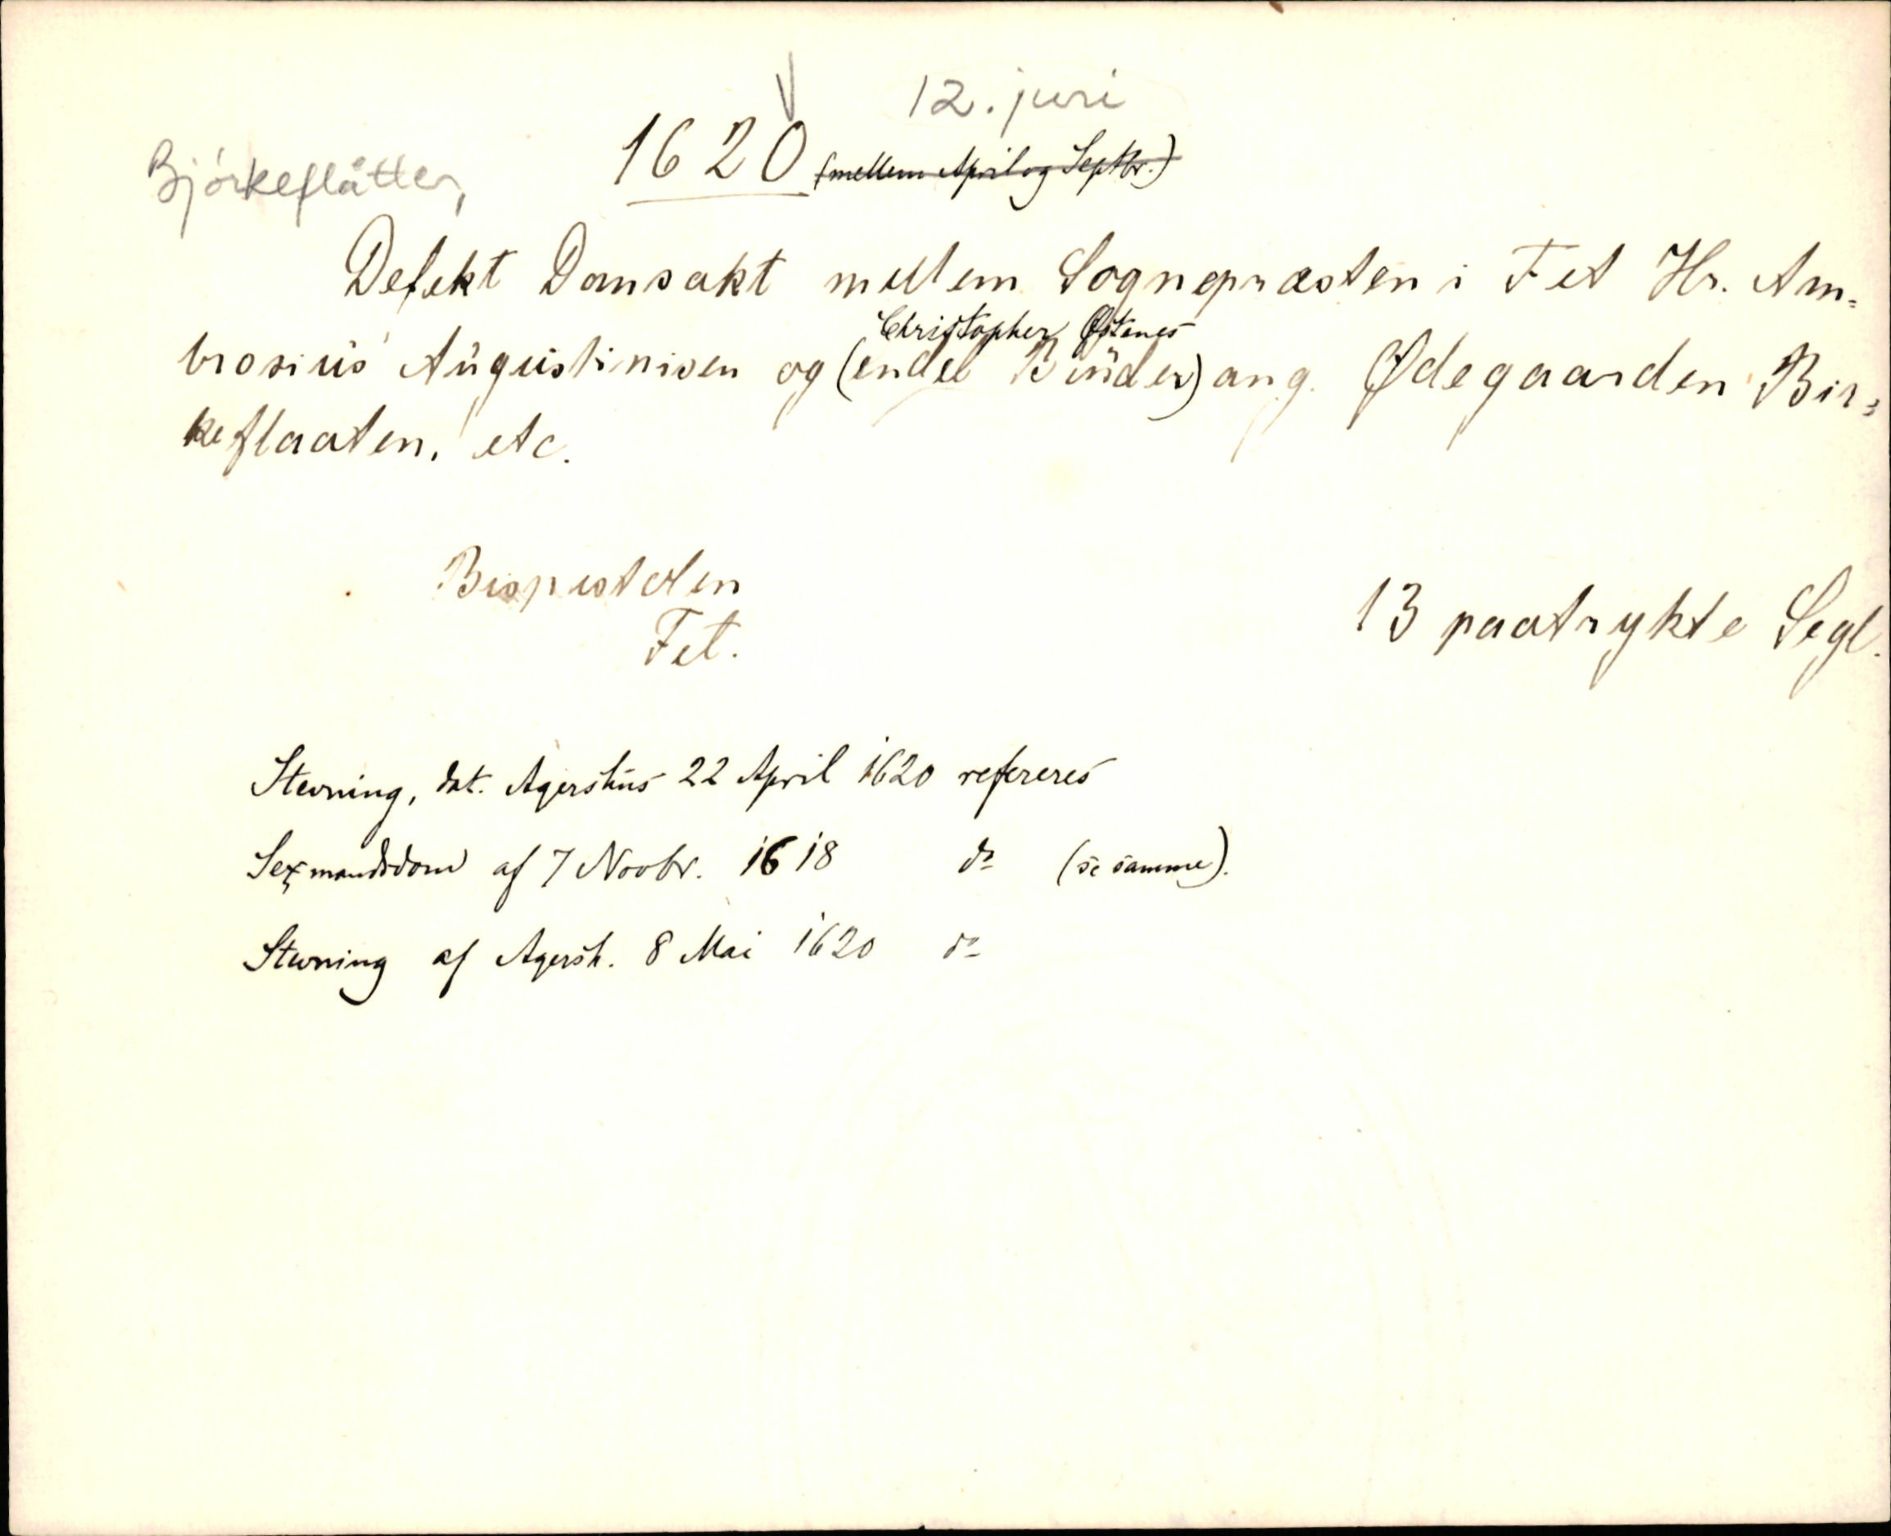 12. juni
1620 (mellem April og Septbr.)
Björkeflåtten,
Defekt Domsakt mellem Sognepræsten i Fet Hr. Am=
Christopher Østenes
brosius Augustinisen og (endel Bönder) ang. Ødegaarden Bir=
keflaaten, etc.
Bispestolen
Fet.
13 paatrykte Segl.
Stevning, dat. Agershus 22 April 1620 refereres
Sexmandsdom af 7 Novbr. 1618 do (se samme).
Stevning af Agersh. 8 Mai 1620 do